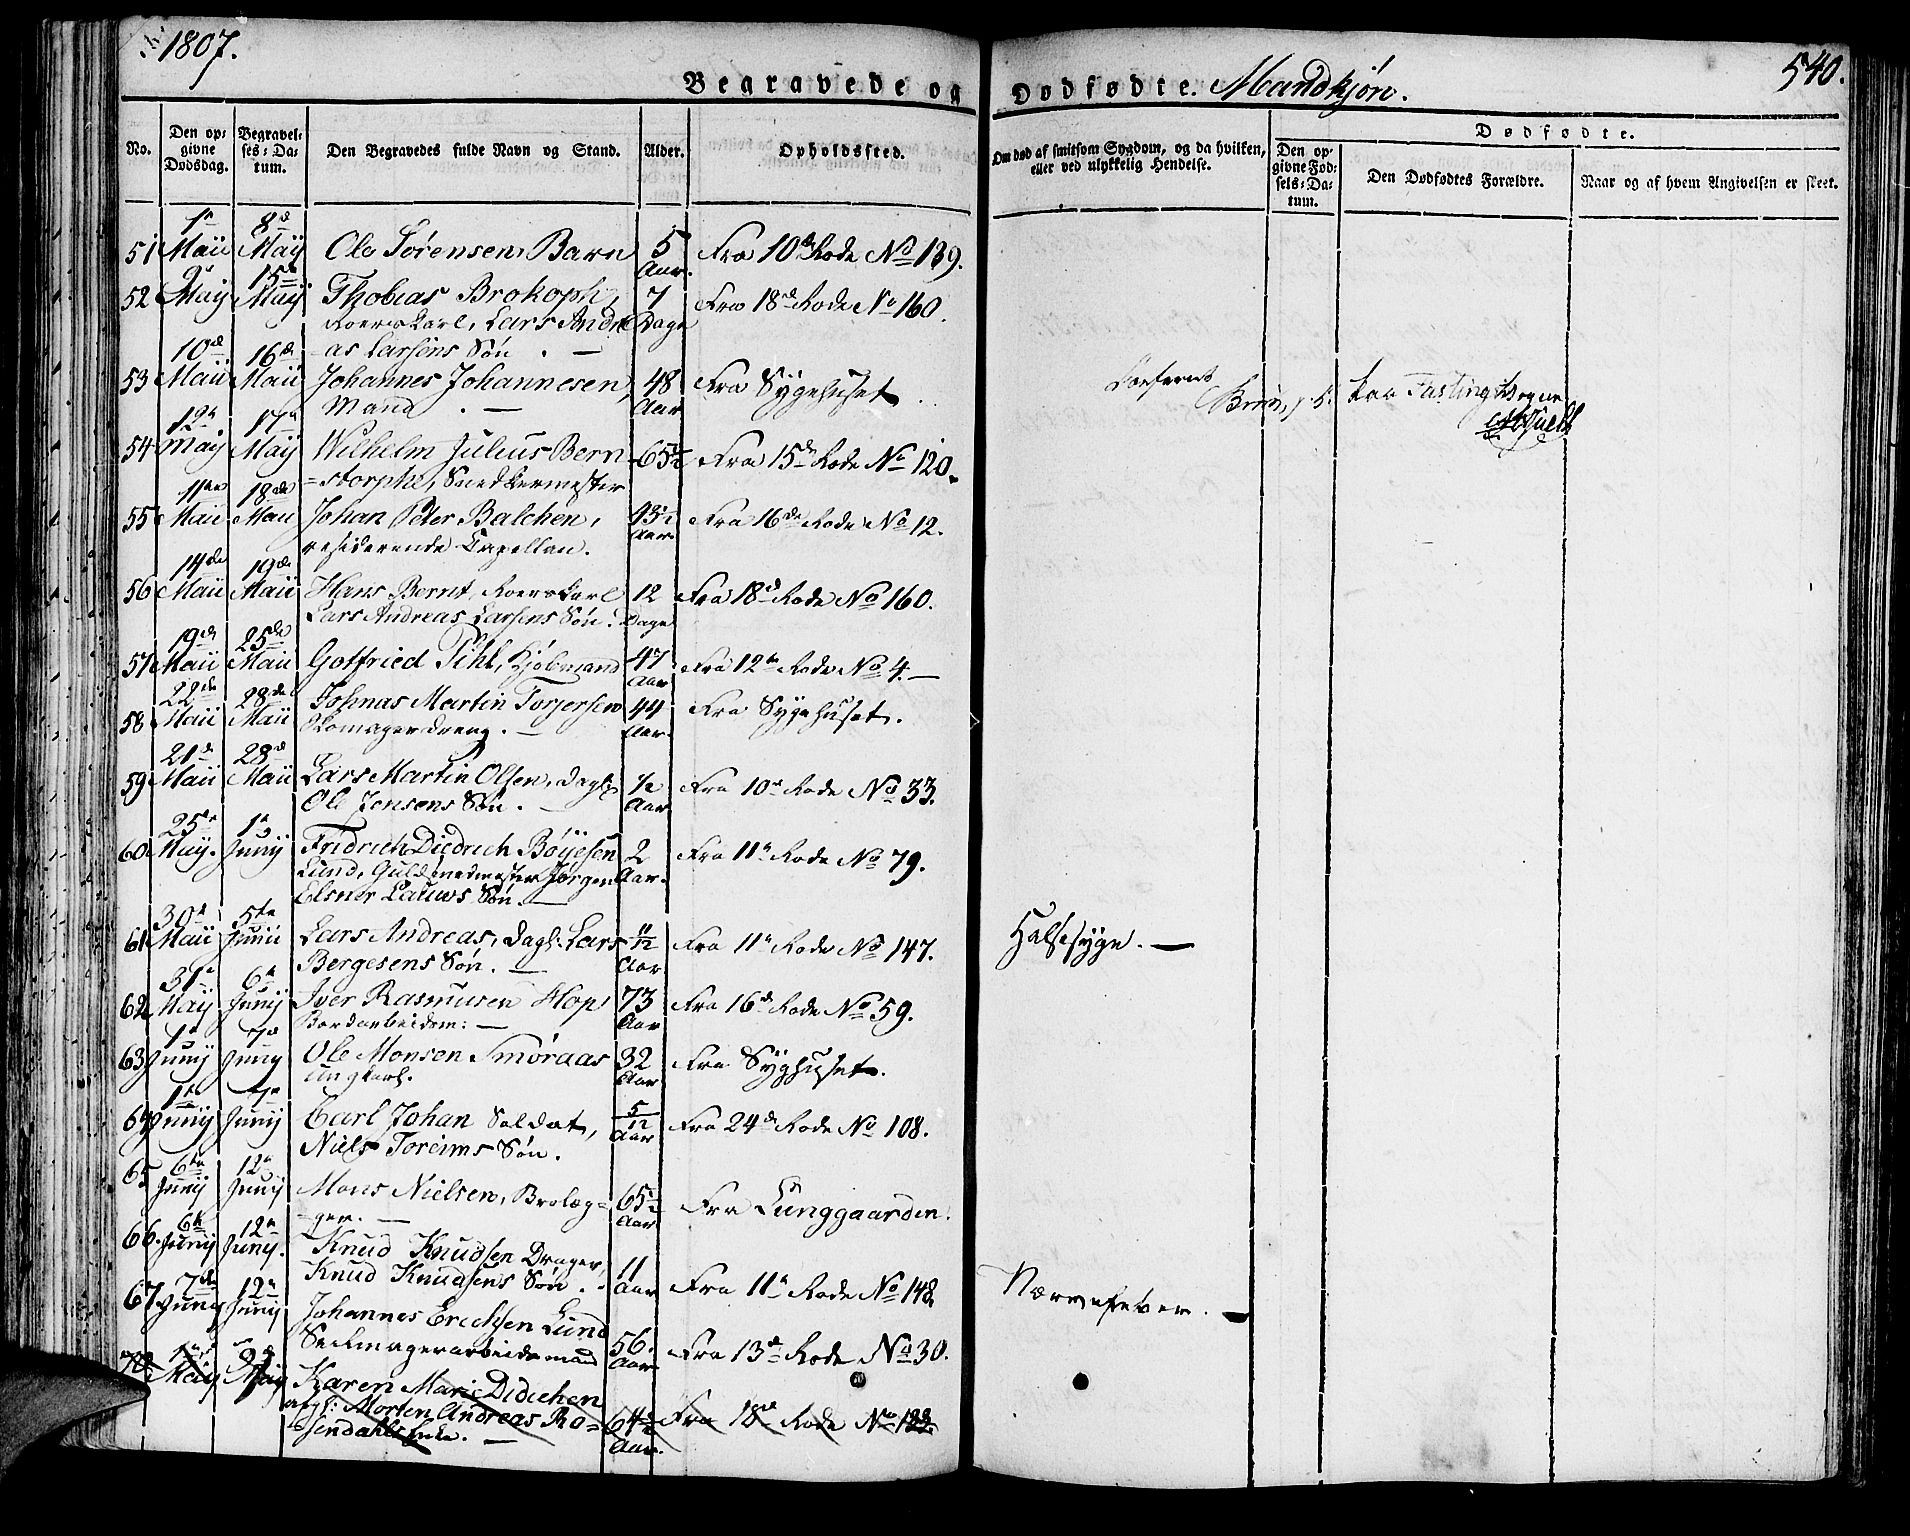 1807.
Begravede og Dødfødte. Mandkjøn. 540.
No. Den opgivne Dødsdag. Begravelses-Datum. Den Begravedes fulde Navn og Stand. Alder. Opholdssted. Om død af smitsom Sygdom, og da hvilken, eller ved ulykkelig Hendelse. Dødfødte. Den opgivne Fødsels-Datum. Den Dødfødtes Forældre. Naar og af hvem Angivelsen er skeet.
1te 8de
51 Maii May Ole Sørensen, Barn 5 Aar. Fra 10de Rode No 139.
9de 15de
52 May May Thobias Brokoph, 7 Dage Fra 18de Rode No 160.
Roerskarl, Lars Andre
10de 16de as Larsens Søn . —
53 Maii Maii Johannes Johannesen, 48 Aar Fra Sygehuset .
Mand . —
12te 17de
54 May May Wilhelm Julius Bern 65½ Fra 15de Rode No 120.
=storphe, Snedkermester
11te 18de
55 Maii Maii Johan Peter Balchen, 93½ Aar. Fra 16de Rode No 12.
residerende Capellan.
14de 19de
56 Maii Maii Hans Bernt, Roerskarl 12 Dage Fra 18de Rode No 160.
Lars Andreas Larsens Søn.
19de 25de
57 Maii Maii Gotfried Pihl, Kjøbmand 47 Aar Fra 12te Rode No 4. —
22de 28de
58 Maii Maii Johnas Martin Torjersen 44 Aar. Fra Sygehuset.
Skomagerdreng. —
21de 28de
59 Maii Maii Lars Martin Olsen, Dagk: ½ Aar Fra 10de Rode No 33.
Ole Jensens Søn. —
25de 1te
60 May. Junij Fridrich Diedrich Bøyesen 2 Aar. Fra 11te Rode No 79.
Lund, Guldsmedmester Jørgen
Elsner Lauws Søn. —
30te 5te
61 Maii Junii Lars Andreas, Dagk: Lars 11/12 Aar Fra 11te Rode No 147. Halssyge. —
Bergesens Søn. —
31te 6te
62 May Junij Iver Rasmusen Hop, 73 Aar Fra 16de Rode No 59.
Bordarbeidsm: —
1te 7de
63 Junij Junij Ole Monsen Smøraas 32 Aar Fra Syghuset.
ungkarl.
1te 7de
64 Junij Junij Carl Johan Soldat, 5/12 Aar Fra 24de Rode No 108.
Niels Toreims Søn.
6te 12te
65 Junij Junij Mons Nielsen, Brolæg= 65½ Aar Fra Lunggaarden.
=ger. —
6te 12te
66. Junij Junij. Knud Knudsen Drager, 11 Aar Fra 11te Rode No 148. Nærvefeber. —
Knud Knudsens Søn .
7de 12te
67 Junij Junij Johannes Erichsen Lund 56. Aar Fra 13de Rode No 30.
Seilmagerarbeidsmand
May May Karen Marie Didichen
afg: Morten Andreas Ro= 64½ Aar. Fra 18de Rode No 
=sendahls Enke. —